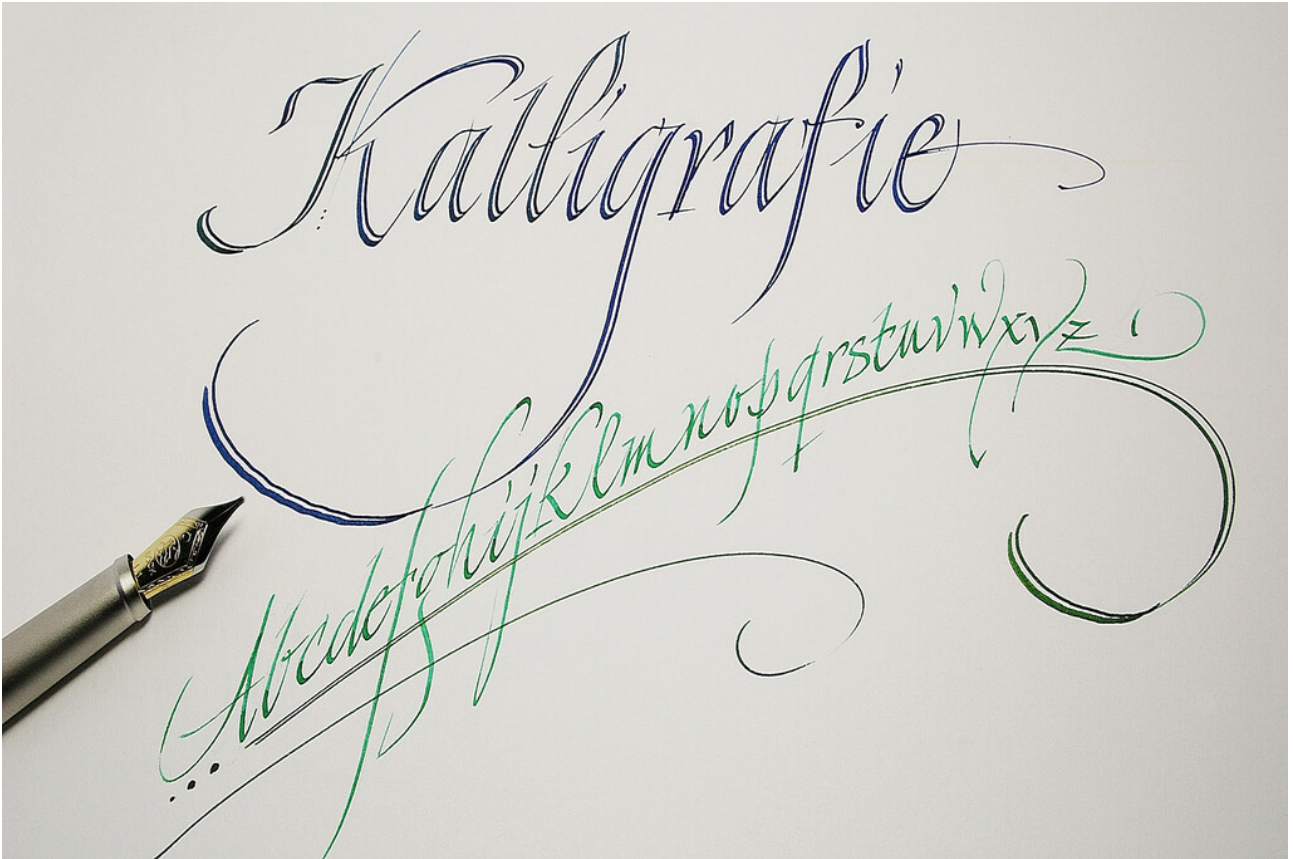 Kalligrafie
Abcdefghijklmnopqrstuvwxyz